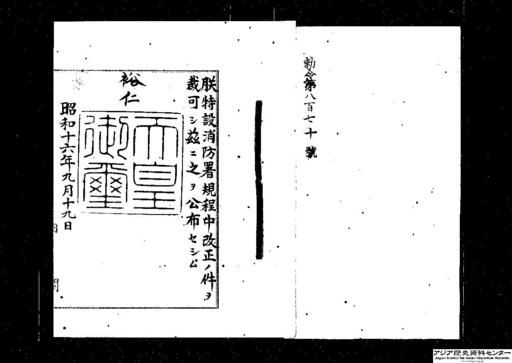 勅令第八百七十號
朕特設消防署規程中改正ノ件ヲ
裁可シ茲ニ之ヲ公布セシム
裕仁
天皇
御璽
昭和十六年九月十九日
内閣
アジア歴史資料センター
Japan Center for Asian Historical Records